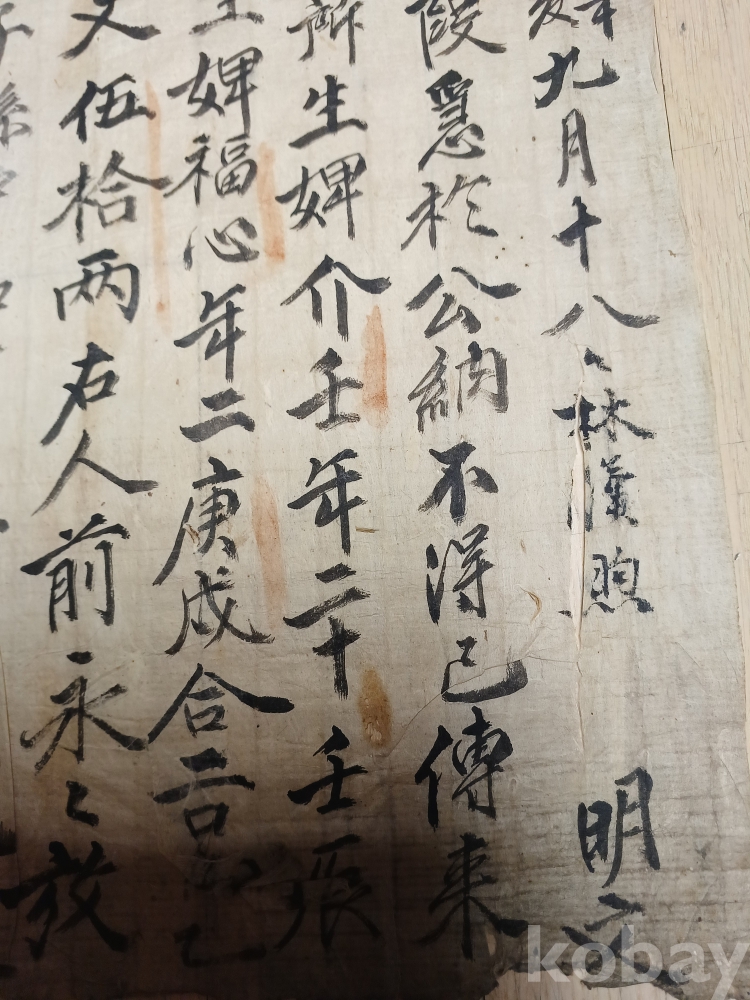 九月十八〻林漢煦 明文
段急於公納不得已傳来
所生婢介壬年二十壬辰
生婢福心年二庚戌合二口乙
文伍拾両右人前永〻放
子孫
kobay